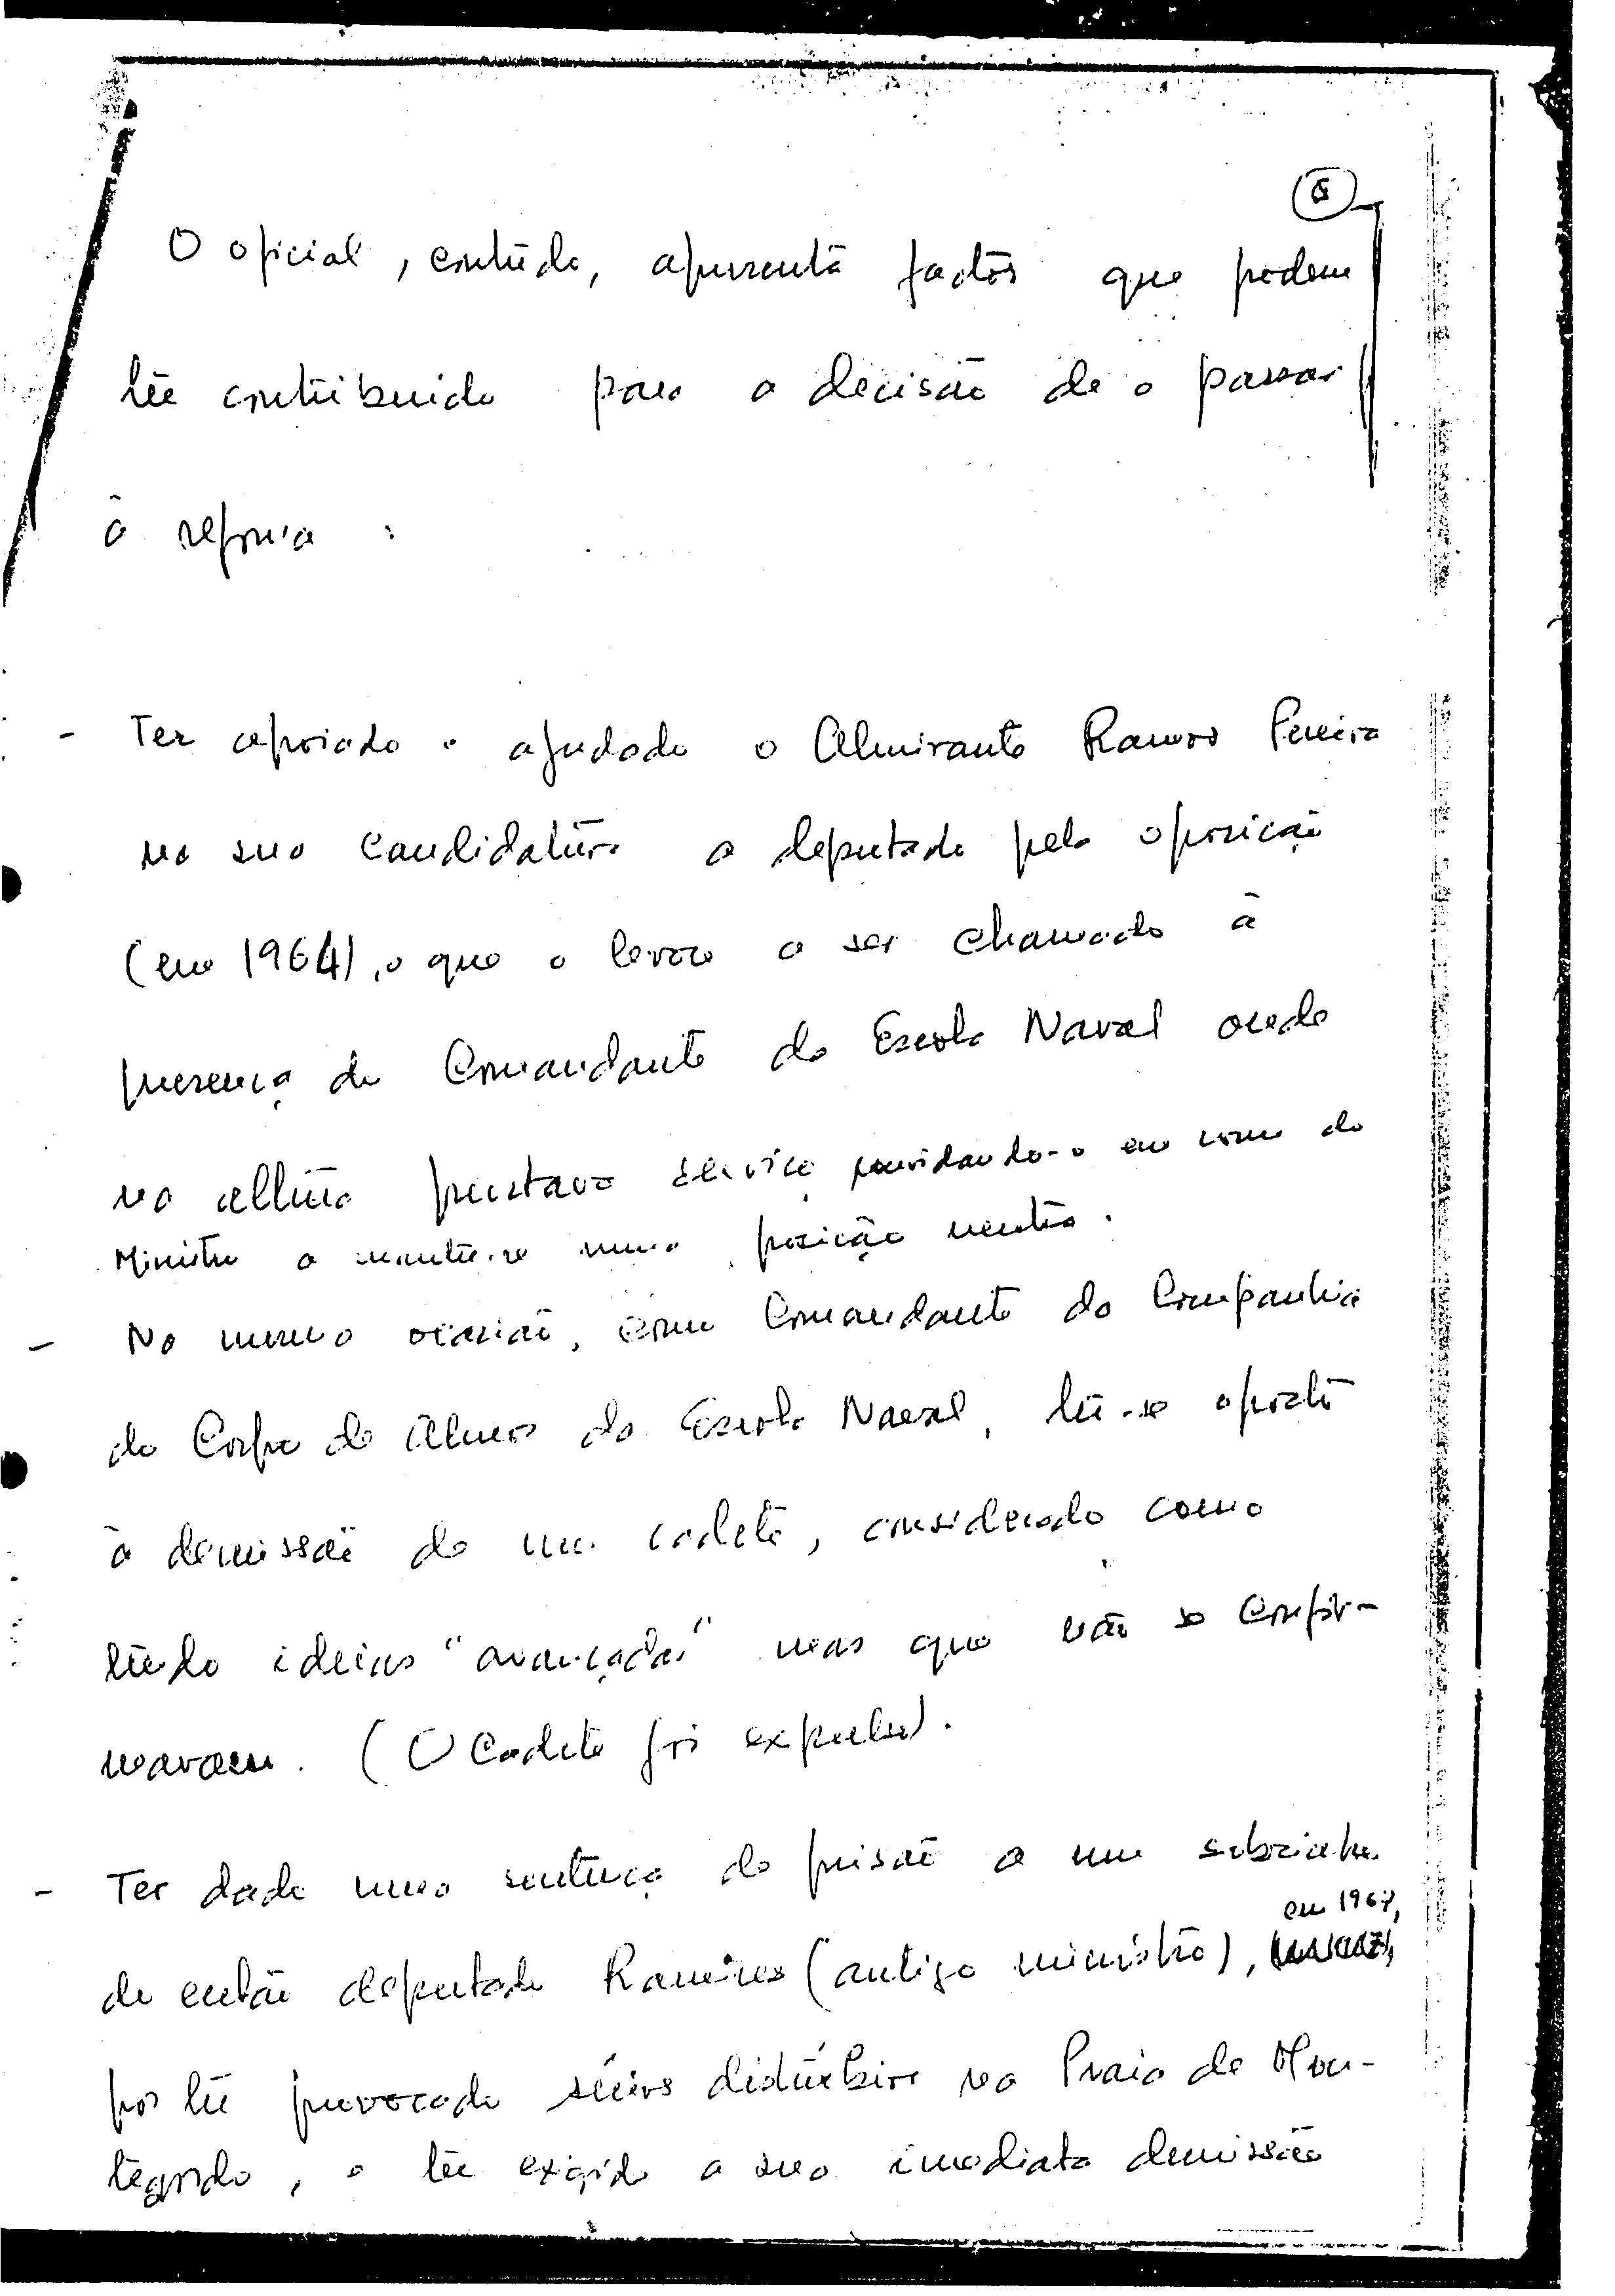 5
O oficial, contudo, apresenta factos que podem
ter contribuido para a decisão de o passar
à reforma :
- Ter apoiado e ajudado o Almirante Ramos Pereira
na sua candidatura a deputado pela oposição
(em 1964), o que o levou a ser chamado à
presença do Comandante da Escola Naval onde
na altura prestava serviço convidando-o em nome do
Ministro a manter-se numa posição neutra.
- Na mesma ocasião, como Comandante da Companhia
do Corpo de Alunos da Escola Naval, ter-se oposto
à demissão de um cadete, considerado como
tendo ideias "avançadas" mas que não se confir-
mavam. (O Cadete foi expulso).
- Ter dado uma sentença de prisão a um sobrinho
em 1967,
do então deputado Ramires (antigo ministro),
por ter provocado sérios distúrbios na Praia de Mon-
tegordo, e ter exigido a sua imediata demissão